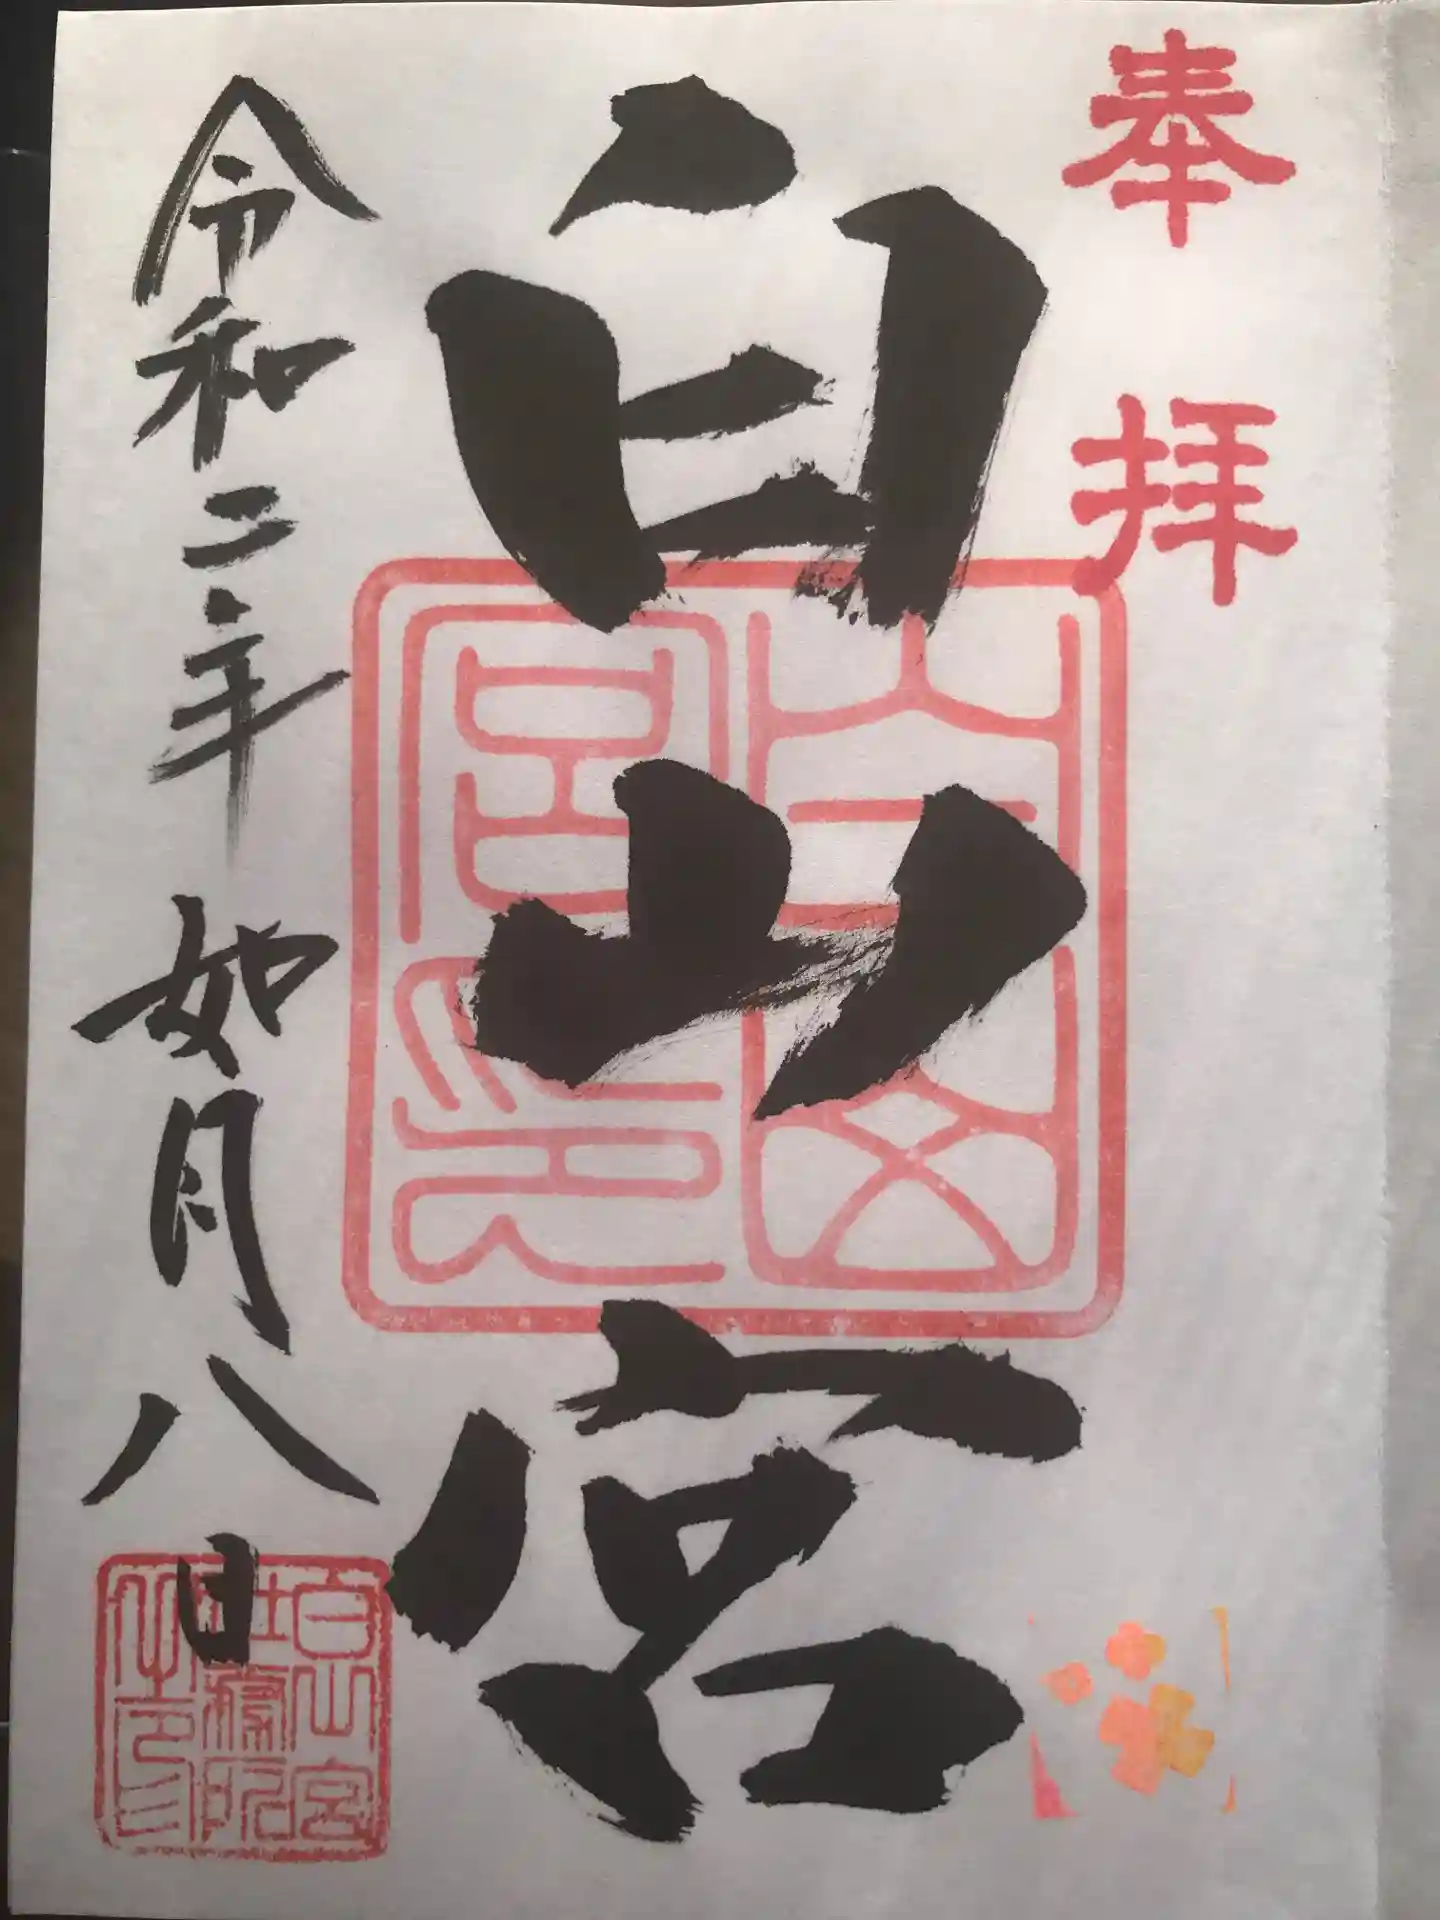 奉拝
白山宮
白山宮印
令和二年 如月八日
白山宮
社務所